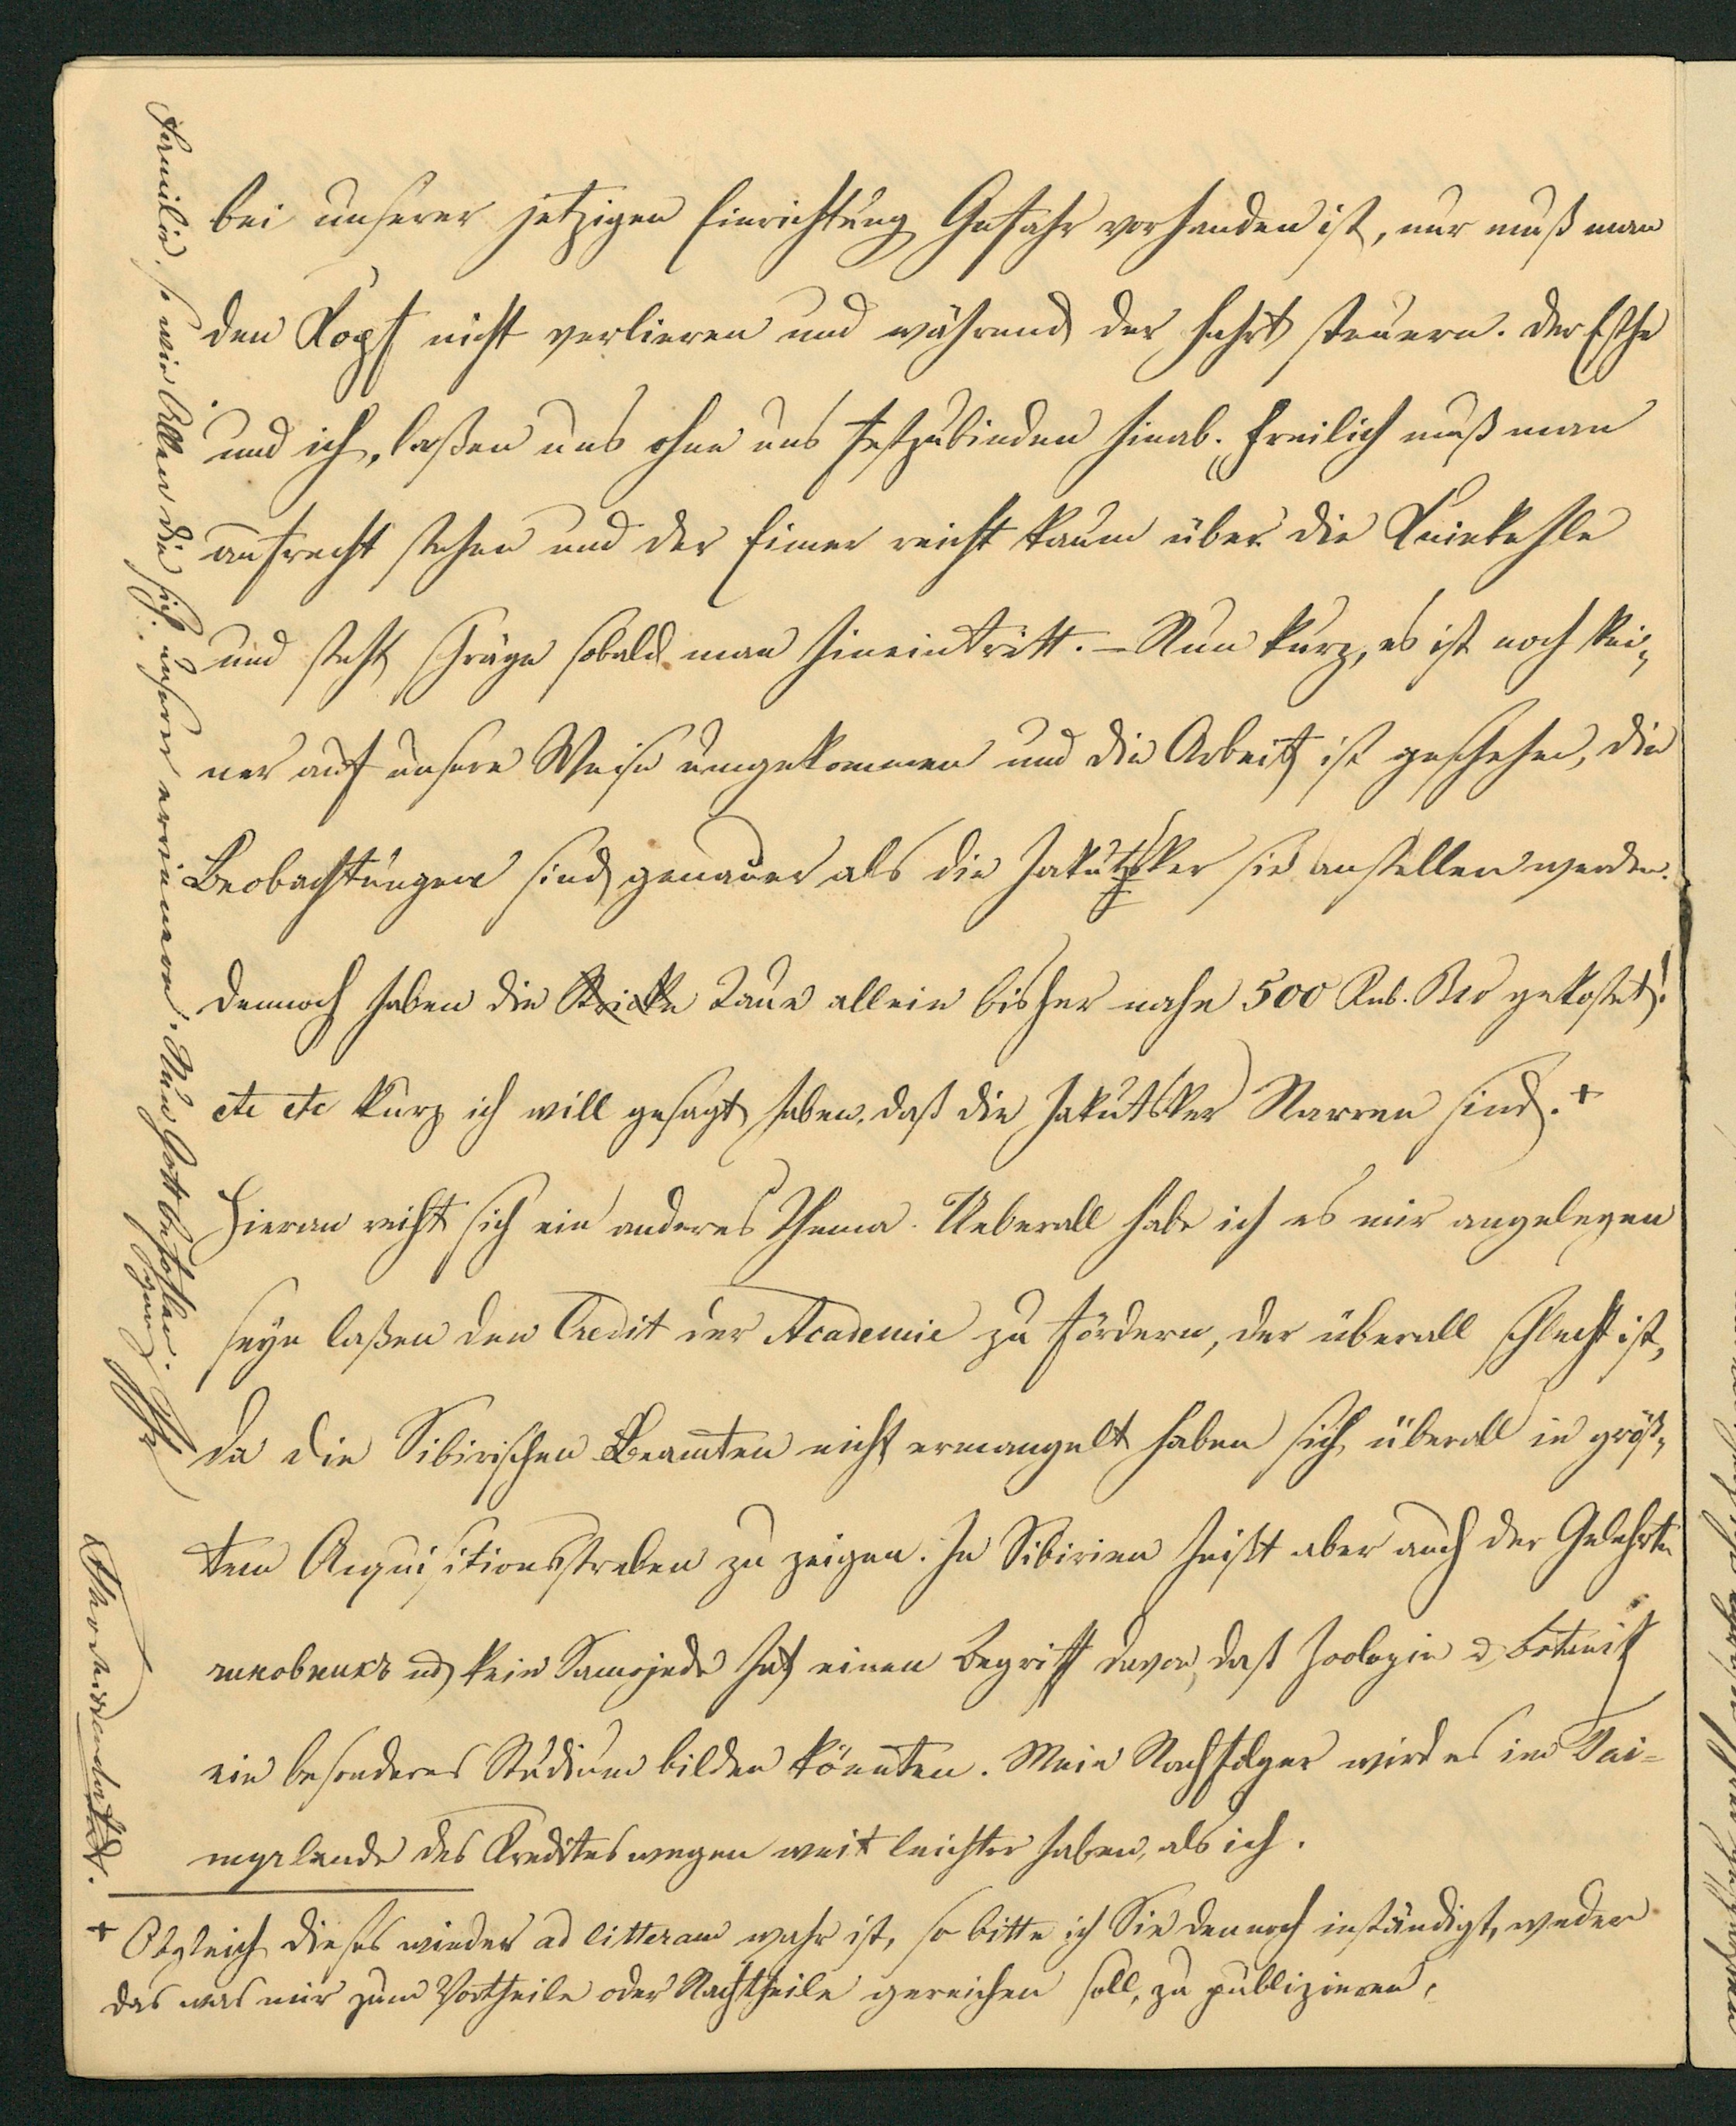 bei unserer jetzigen Einrichtung Gefahr vorhanden ist, nur muß man
den Kopf nicht verlieren und während der Fahrt steuern. Der Esthe
und ich, laßen uns ohne uns festzubinden hinab. Freilich muß man
aufrecht stehen und der Eimer reicht kaum über die Kniekehle
und steht schräge sobald man hineintritt. – Nun kurz, es ist noch kei-
ner auf unsere Weise umgekommen und die Arbeit ist geschehen, die
Beobachtungen sind genauer als die Jakutsker sie anstellen werden.
Dennoch haben die Stricke Taue allein bisher nahe 500 Rub. Bco gekostet!
etc etc kurz ich will gesagt haben, daß die Jakutsker Narren sind. +
Hieran reiht sich ein anderes Thema. Ueberall habe ich es mir angelegen
seyn laßen den Credit der Academie zu fördern, der überall schlecht ist,
da die Sibirischen Beamten nicht ermangelt haben sich überall in größ-
tem Acquisitionsstreben zu zeigen. In Sibirien heißt aber auch der Gelehrte
чиновникъ und kein Samojede hat einen Begriff davon, daß Zoologie u. Botanik
ein besonderes Studium bilden könnten. Mein Nachfolger wird es im Tai-
myrlande des Kredites wegen weit leichter haben, als ich.
+ Obgleich dieses wieder ad litteram wahr ist, so bitte ich Sie dennoch inständigst, weder
das was mir zum Vortheile oder Nachtheile gereichen soll, zu publiziren,
Familie, so wie Allen die sich unserer erinnern. Nun Gott befohlen.
Ihr
Middendorff.